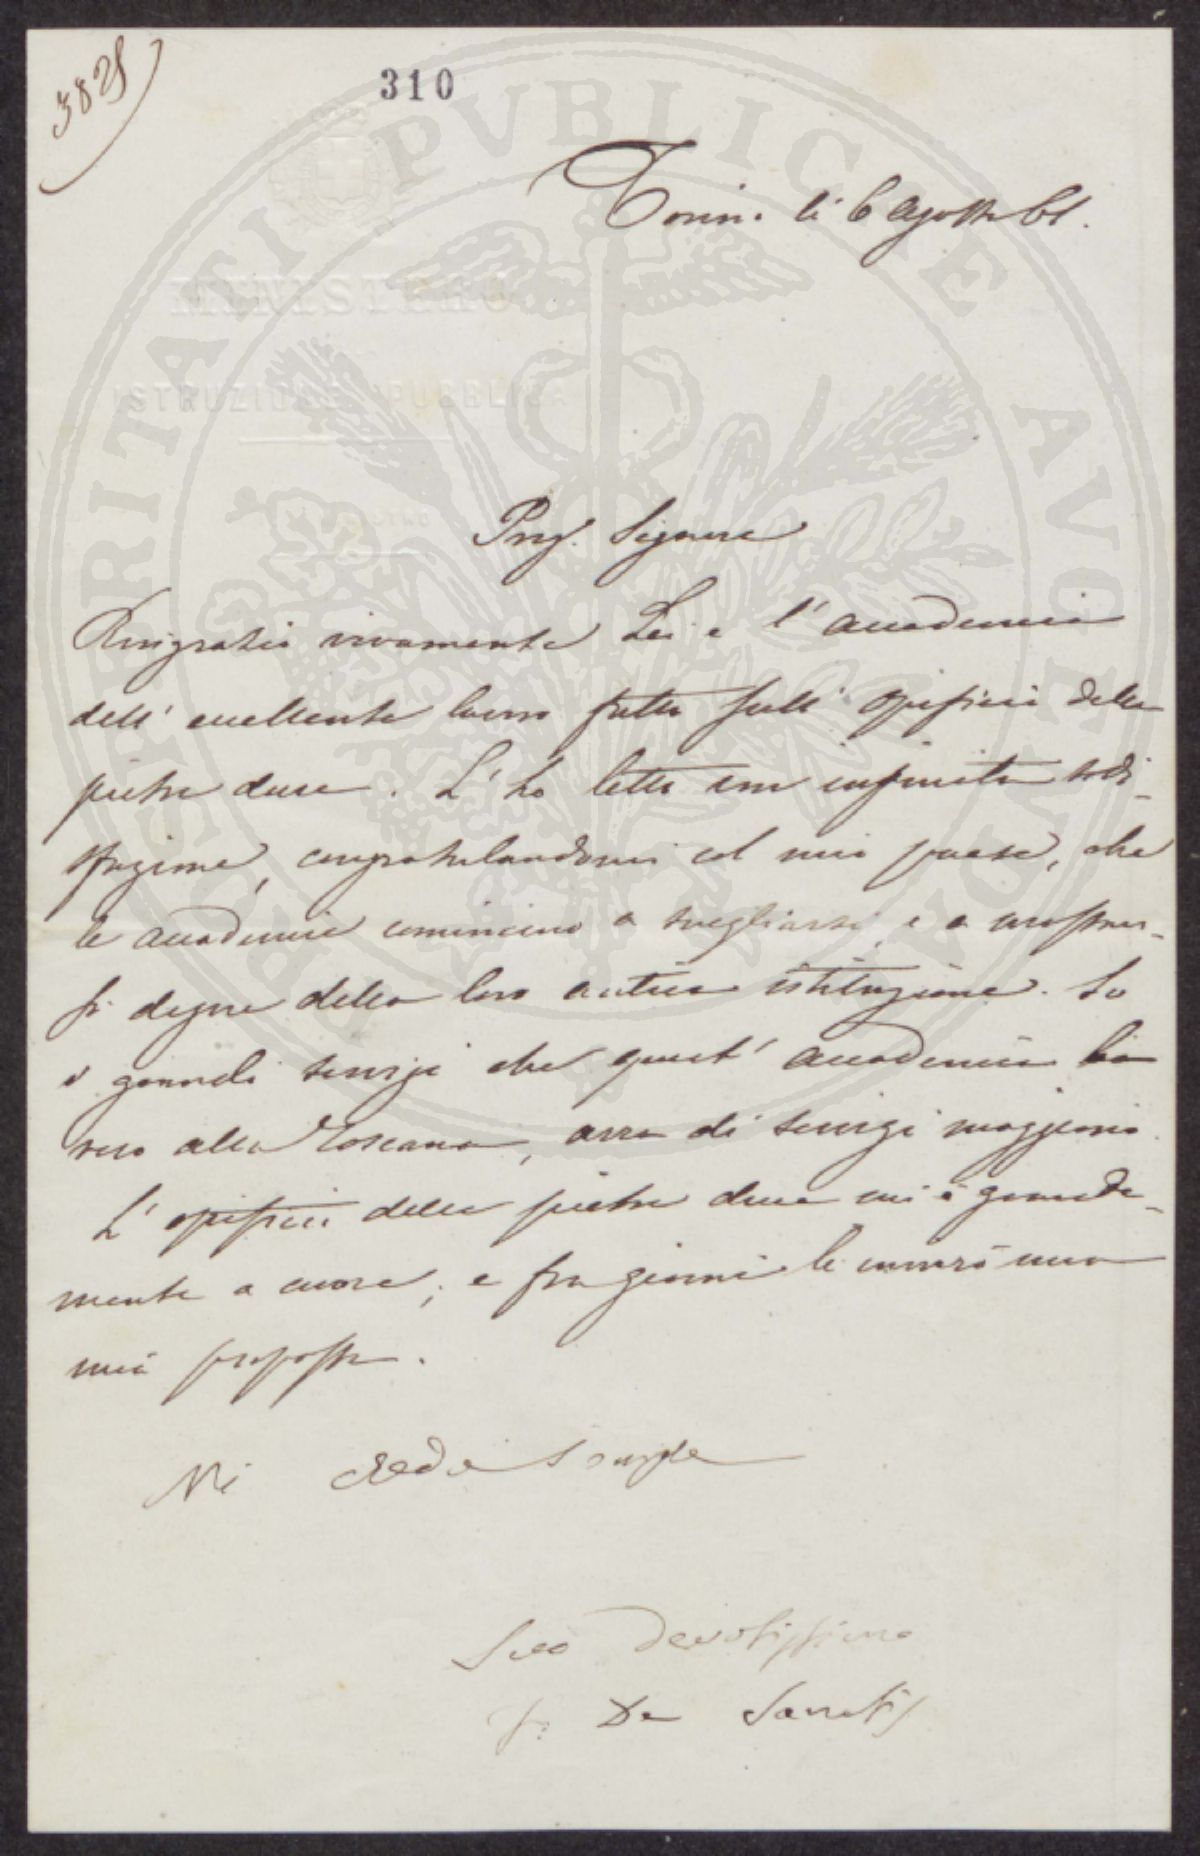 3828
310
Torino li 6 Agosto 61.
MINISTERO
ISTRUZIONE PUBBLICA
PROSPERITATI PVBLICAE AVGENDAE
Preg. Signore
Ringrazio vivamente Lei e l'accademia
dell' eccellente lavoro fatto sull' opificio delle
pietre dure. L'ho letto con infinita sodi-
sfazione, congratulandomi col mio paese, che
le accademie comincino a svegliarsi, e a mostrar-
si degne della loro antica istituzione. So
i grandi servigi che quest' accademia ha
reso alla Toscana, arra di servigi maggiori.
L' opificio delle pietre dure mi è grande-
mente a cuore; e fra giorni le invierò una
mia proposta.
Mi creda sempre
Suo Devotissimo
F. De Sanctis